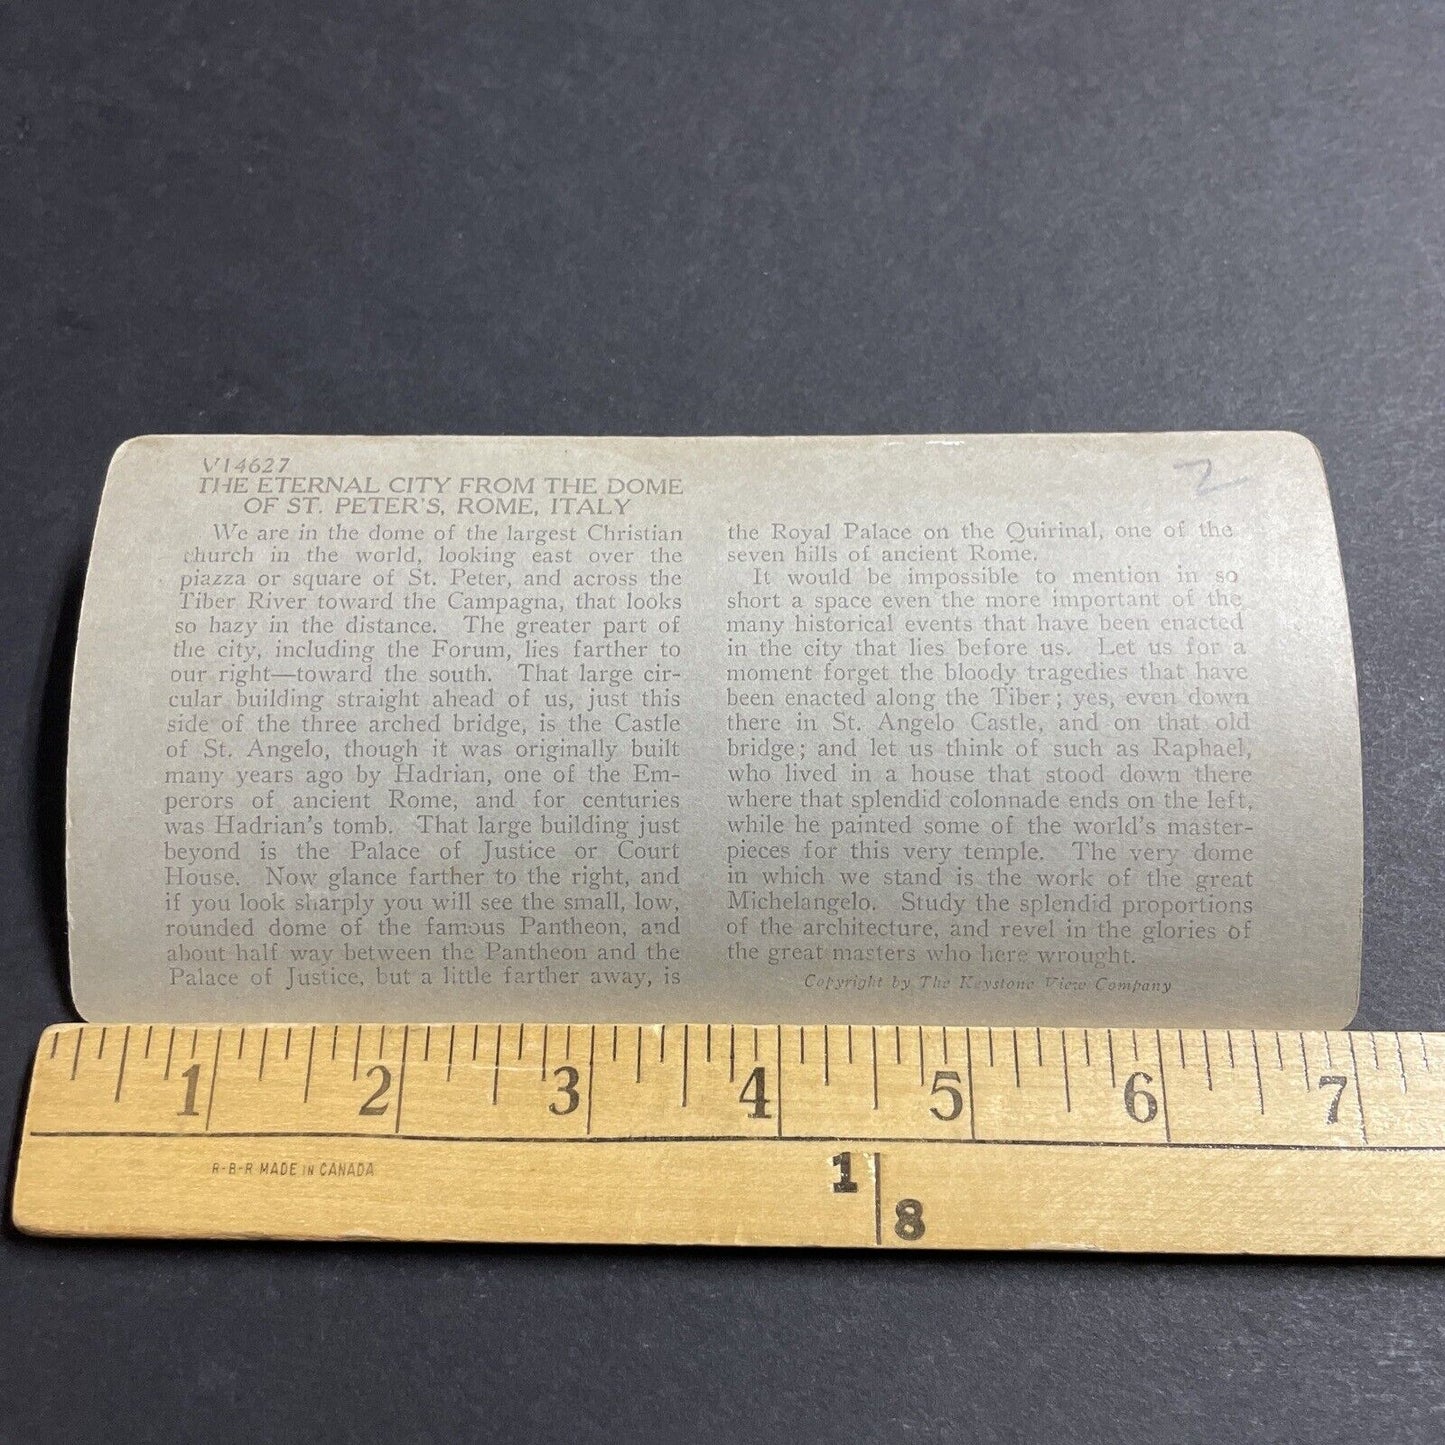 V14627
THE ETERNAL CITY FROM THE DOME
OF ST. PETER'S, ROME, ITALY
We are in the dome of the largest Christian
church in the world, looking east over the
piazza or square of St. Peter, and across the
Tiber River toward the Campagna, that looks
so hazy in the distance. The greater part of
the city, including the Forum, lies farther to
our right—toward the south. That large cir-
cular building straight ahead of us, just this
side of the three arched bridge, is the Castle
of St. Angelo, though it was originally built
many years ago by Hadrian, one of the Em-
perors of ancient Rome, and for centuries
was Hadrian's tomb. That large building just
beyond is the Palace of Justice or Court
House. Now glance farther to the right, and
if you look sharply you will see the small, low,
rounded dome of the famous Pantheon, and
about half way between the Pantheon and the
Palace of Justice, but a little farther away, is
2
the Royal Palace on the Quirinal, one of the
seven hills of ancient Rome.
It would be impossible to mention in so
short a space even the more important of the
many historical events that have been enacted
in the city that lies before us. Let us for a
moment forget the bloody tragedies that have
been enacted along the Tiber; yes, even down
there in St. Angelo Castle, and on that old
bridge; and let us think of such as Raphael,
who lived in a house that stood down there
where that splendid colonnade ends on the left,
while he painted some of the world's master-
pieces for this very temple. The very dome
in which we stand is the work of the great
Michelangelo. Study the splendid proportions
of the architecture, and revel in the glories of
the great masters who here wrought.
Copyright by The Keystone View Company
1 2 3 4 5 6 7
R-B-R MADE IN CANADA
1
8